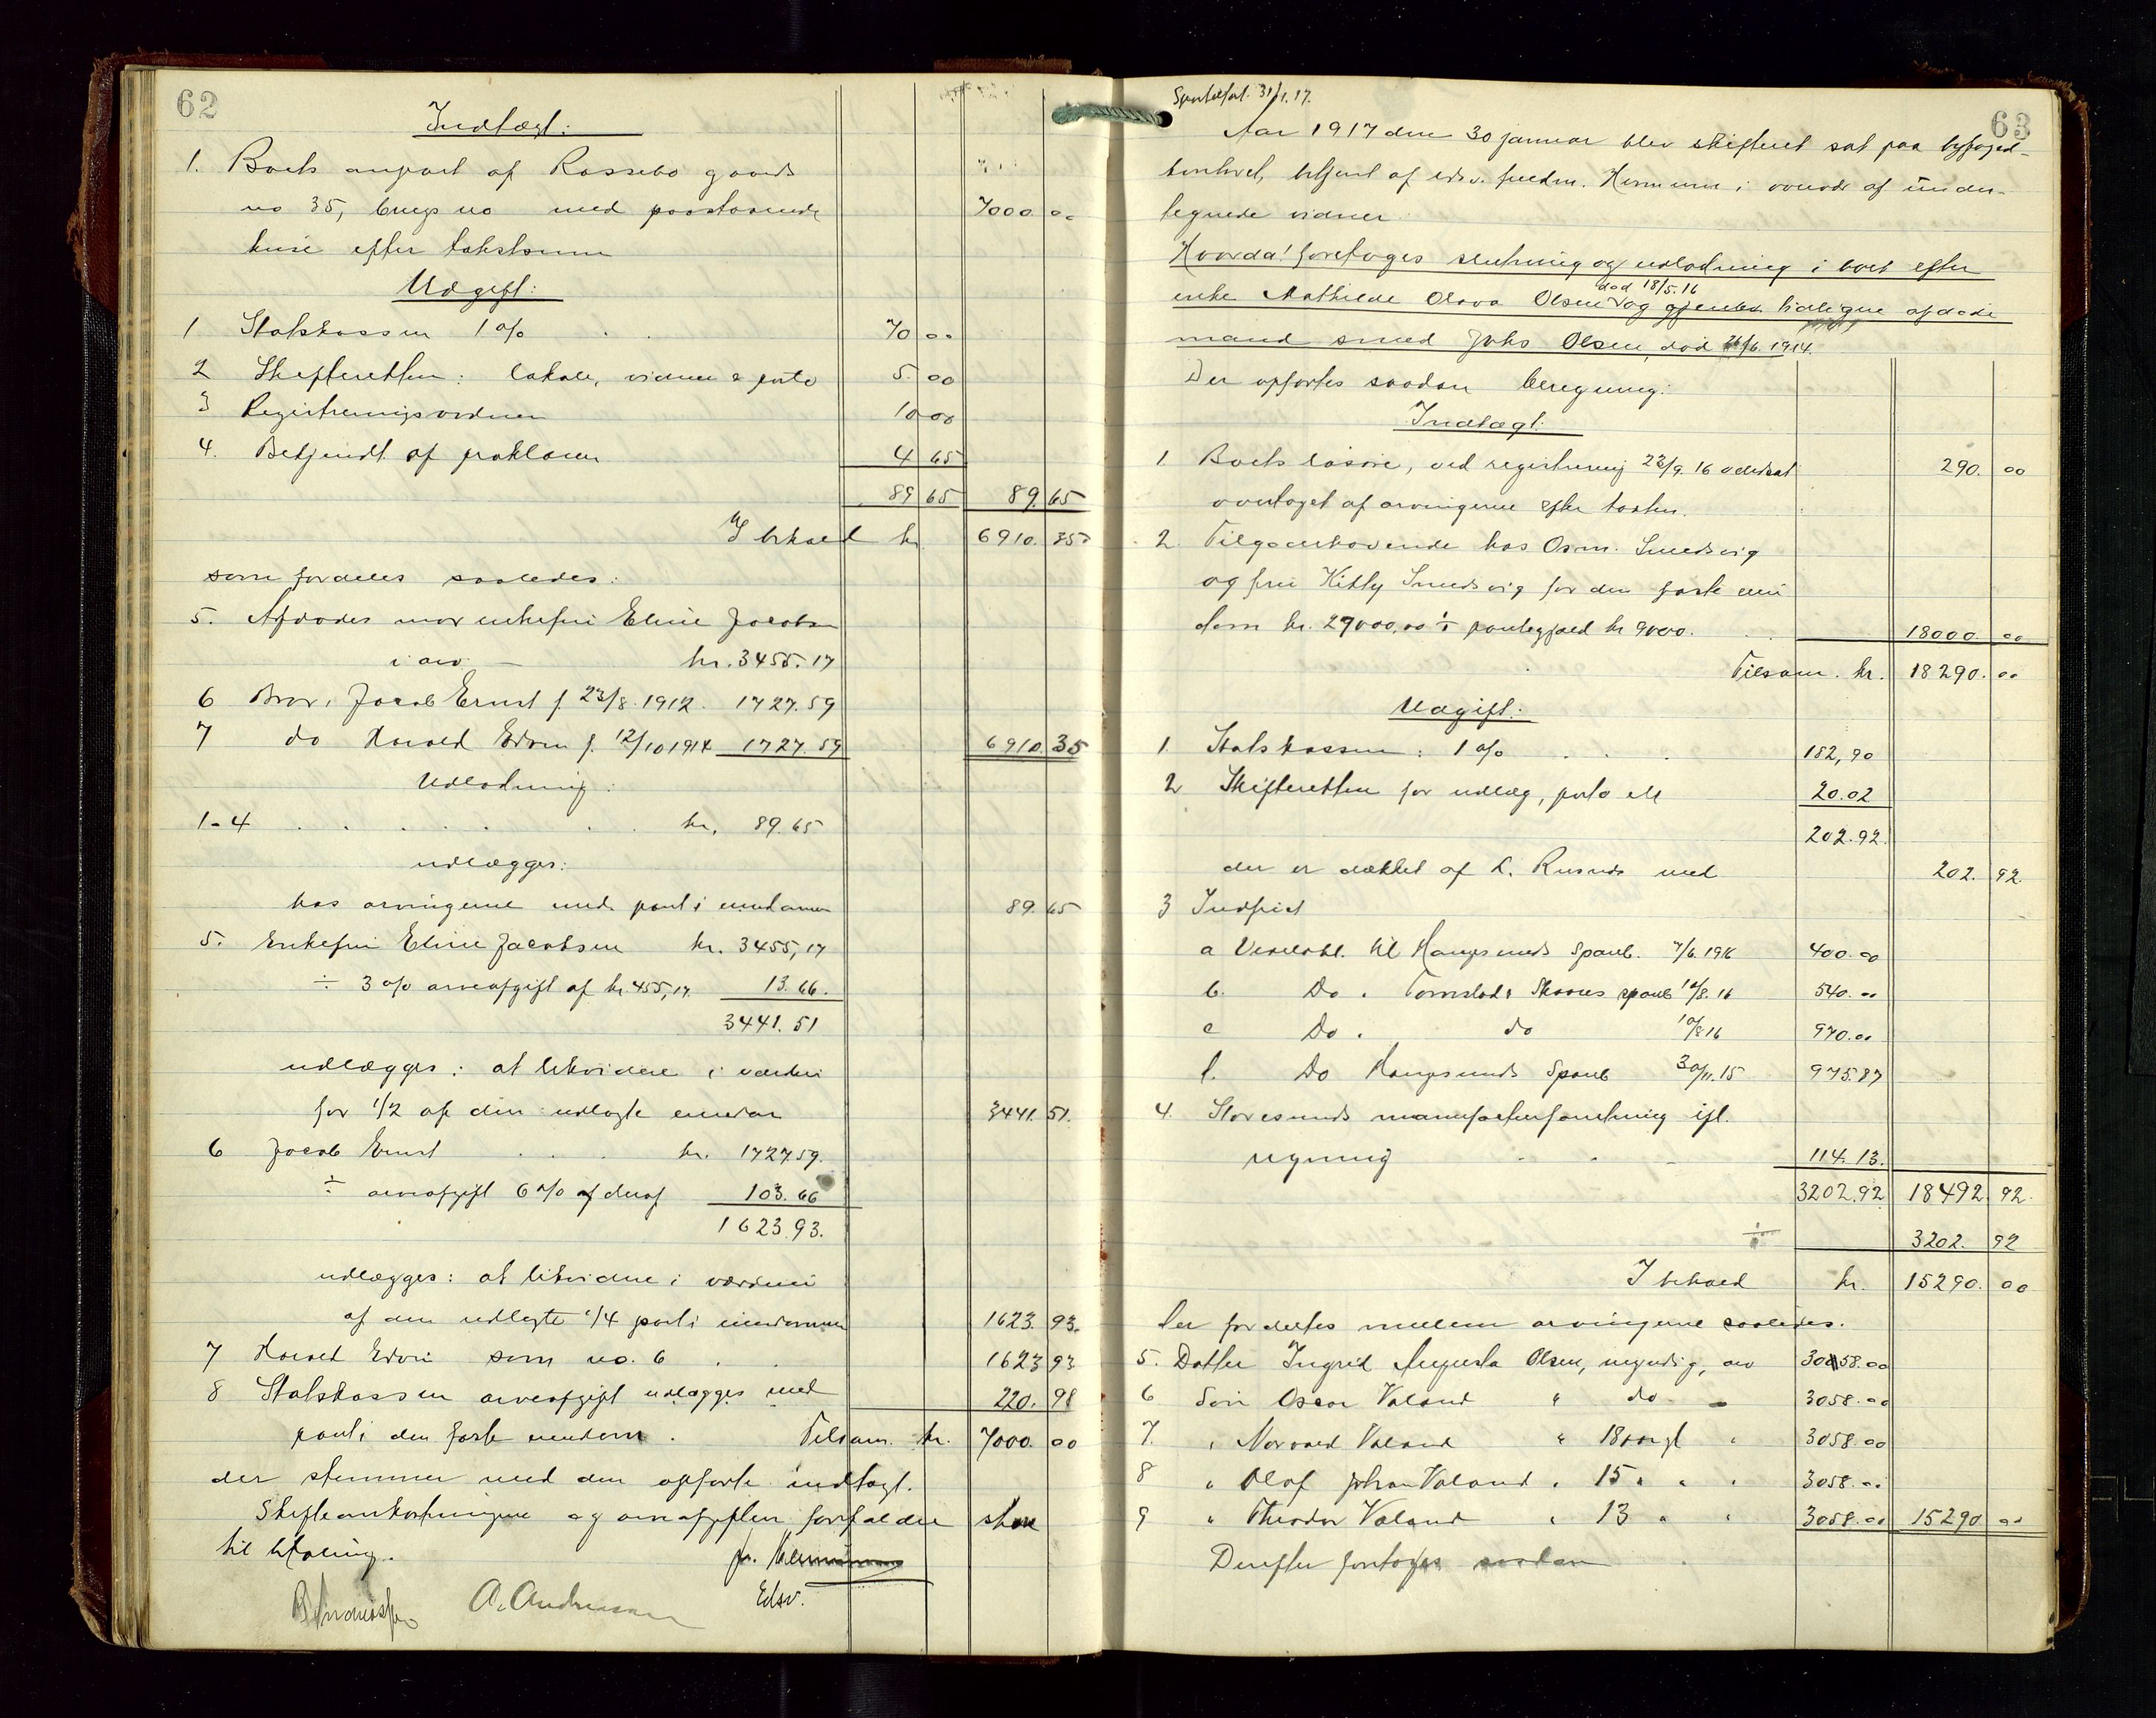 62
Indtægt:
1. Boets anpart af Rossebo gaards
no 35, brugs no med paastaaende 7000.00
huse efter takstsum
Udgift:
1 Statskassen 1 o/o . . 70 00
2 Skifteretten: lokale, vidner & porto 5.00
3 Registreringsvidner 10 00
4. Bekjendt. af proklama 4 65
89 65 89.65
I behold kr 6910.35
som fordeles saaledes:
5. Afdødes mor enkefru Eline Jacobsen
i arv — kr. 3455.17
6 Bror, Jacob Ernst f 23/8.1912. 1727.59
7 do Harald Edvin f. 12/10 1914 1727.59 6910.35
Udlodning:
1-4 . . . . . . . kr. 89.65
udlægges:
hos arvingerne med pant i eiendommen 89.65
5. Enkefru Eline Jacobsen kr. 3455,17
÷ 3 o/o arveafgift af kr 455,17. 13.66.
3441.51
udlægges: at likvidere i værdien
for 1/2 af den udlagte eiendom 3441.51.
6 Jacob Ernst . . . kr. 1727.59.
÷ arveafgift 6 o/o af deraf 103.66
1623.93.
udlægges: at likvidere i værdien
af den udlagte 1/4 part i eiendommen 1623.93.
7 Harald Edvin som no. 6 . . 1623 93
8 Statskassen arveafgift udlægges med 220.98
pant i den faste eiendom. Tilsam. kr. 7000.00
der stemmer med den opførte indtægt.
Skifteomkostningerne og arveafgiften forfalder strax
til betaling.
A. Andreassen
Edsv.
Sportelført. 31/1.17.
63
Aar 1917 den 30 januar blev skifteret sat paa byfoged-
kontoret, betjent af edsv. fuldm. Hermansen i overvær af under-
tegnede vidner.
Hvorda! foretoges slutning og udlodning i boet efter
død 18/5.16
enke Mathilde Olava Olsen og tidligere afdøde
mand smed Johs Olsen, død 26/6.1914.
Der opførtes saadan beregning:
Indtægt:
1. Boets løsøre, ved registrering 23/9.16 vurderat 290.00
overtaget af arvingerne efter taksten.
2. Tilgodehavende hos Osm. Smedsvig
og fru Kitty Smedsvig for den faste eien
dom kr. 29000,00 ÷ pantegjæld kr 9000. 18000.00
Tilsam. kr. 18290.00
Udgift:
1. Statskassen: 1 o/o . . . 182,90
2 Skifteretten for udlæg, porto etc 20.02
202.92.
der er dækket af L. Rusnes med 202.92
3 Indfriet
a Vexelobl. til Haugesunds Sparb. 7/6.1916 400.00
b. Do. Torvestad & Skaares sparb 10/8.16 540.00
c Do. do 10/8 16 970.00
d. Do Haugesunds Sparb 30/11.15 975.87
4. Storesunds manufakturforretning ifl.
regning . . . 114.13.
3202.92 18492.92.
÷ 3202.92
I behold kr. 15290.00
der fordeltes mellem arvingerne saaledes.
5. Datter Ingrid Augusta Olsen, myndig, arv 3058.00
6 Søn Oscar Valand " do. " 3058.00
7. " Norvald Valand " 18 aar gl " 3058.00
8 " Olaf Johan Valand " 15 " " " 3058.00
9 " Theodor Valand " 13 " " 3058.00 15290 00
Derefter foretoges saadan